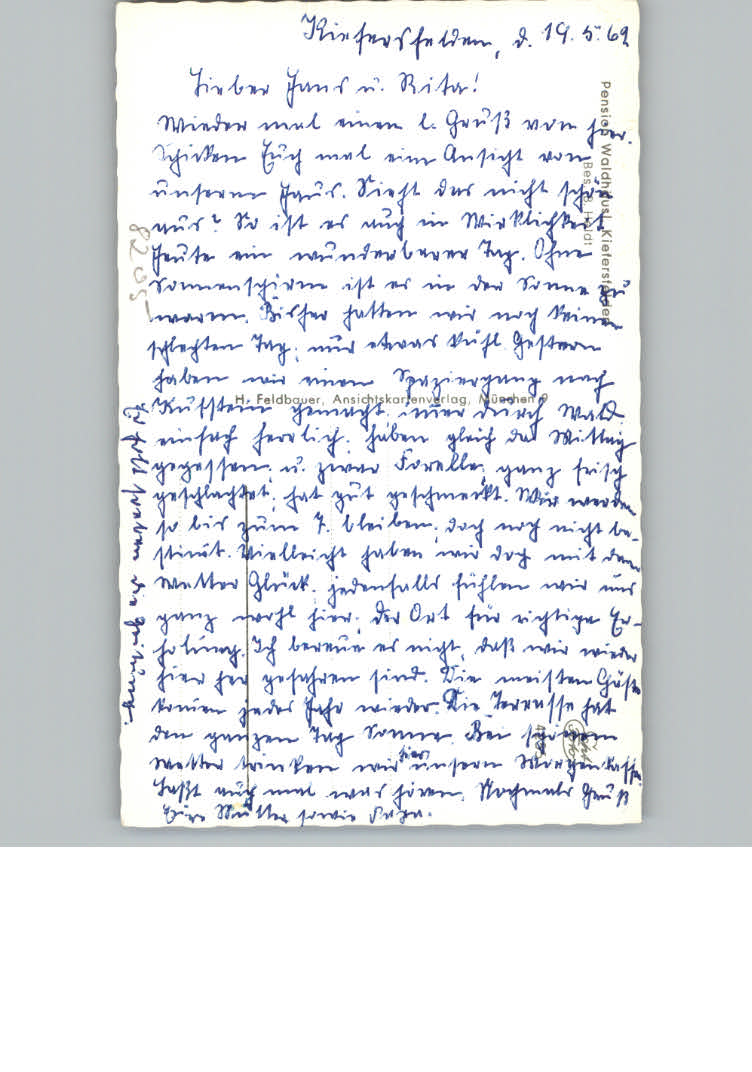 Kiefersfelden, d. 19.5.62
Lieber Hans u. Rita!
Wieder mal einen l. Gruß von hier.
Schicken Euch mal eine Ansicht von
unserem Haus. Sieht das nicht schön
aus? So ist es auch in Wirklichkeit.
Heute ein wunderbarer Tag. Ohne
Sonnenschirm ist es in der Sonne zu
warm. Bisher hatten wir noch keinen
schlechten Tag, nur etwas kühl. Gestern
haben wir einen Spaziergang nach
Kufstein gemacht, immer durch Wald
einfach herrlich, haben gleich da Mittag
gegessen, u. zwar Forelle, ganz frisch
geschlachtet, hat gut geschmeckt. Wir werden
so bis zum 7. bleiben, doch noch nicht be-
stimmt. Vielleicht haben wir doch mit dem
Wetter Glück, jedenfalls fühlen wir uns
ganz wohl hier, der Ort für richtige Er-
holung. Ich bereue es nicht, daß wir wieder
hier her gefahren sind. Die meisten Gäste
kommen jedes Jahr wieder. Die Terrasse hat
den ganzen Tag Sonne. Bei schönem
Wetter trinken wir hier unseren Morgenkaffee
Laßt auch mal was hören. Nochmals Gruß
Eure Mutter sowie Papa.
Pension Waldhaus, Kiefersfelden
Bes. B. Heldt
H. Feldbauer, Ansichtskartenverlag, München 9
8205